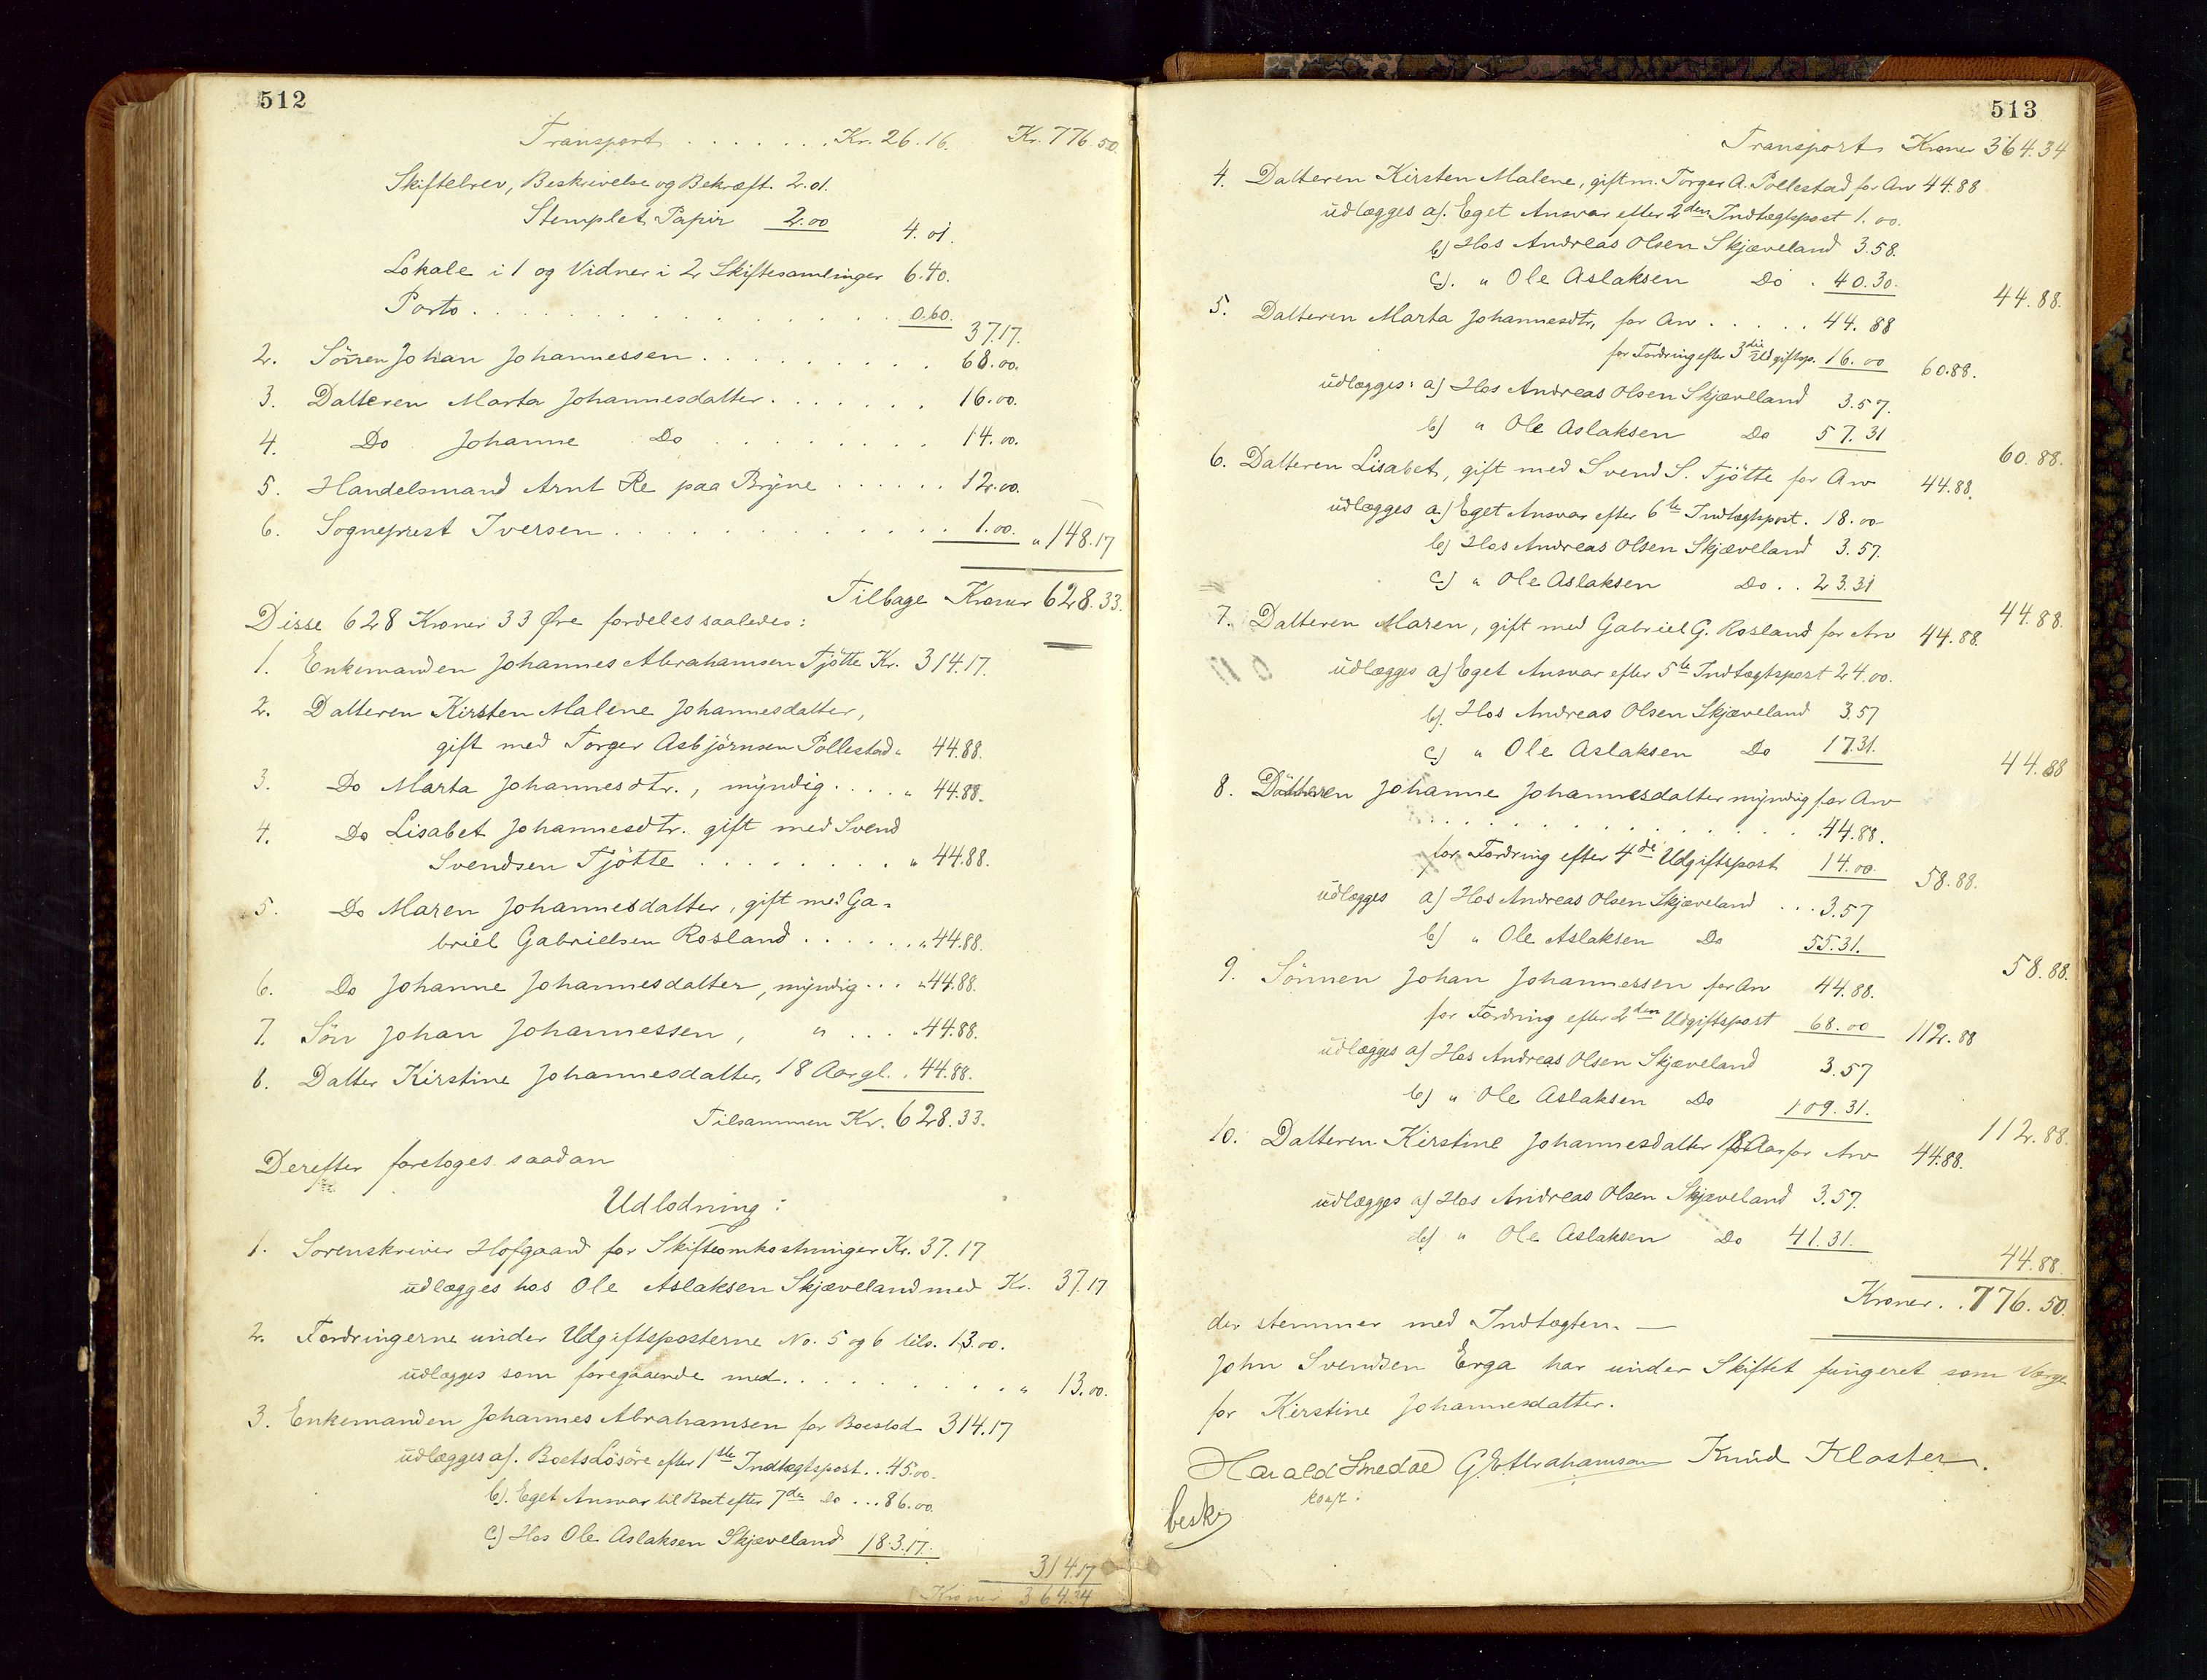 512
Transport . . . . . . . Kr. 26.16. Kr. 776.50.
Skiftebrev, Beskrivelse og Bekræft. 2.01.
Stemplet Papir 2.00 4.01.
Lokale i 1 og Vidner i 2 Skiftesamlinger 6.40.
Porto . . . . . . . . . . . . 0.60.
37.17.
2. Sönnen Johan Johannessen . . . . . . . 68.00.
3. Datteren Marta Johannesdatter . . . . . . 16.00.
4. Do Johanne Do . . . . . . . . 14.00.
5. Handelsmand Arnt Re paa Bryne . . . . . . 12.00.
6. Sogneprest Iversen . . . . . . . . . . . 1.00. " 148.17
Tilbage Kroner 628.33.
Disse 628 Kroner 33 Øre fordeles saaledes:
1. Enkemanden Johannes Abrahamsen Tjötte Kr. 314.17.
2. Datteren Kirsten Malene Johannesdatter,
gift med Torger Asbjörnsen Pollestad " 44.88.
3. Do Marta Johannesdtr., myndig . . . . " 44.88.
4. Do Lisabet Johannesdtr. gift med Svend
Svendsen Tjötte . . . . . . . . " 44.88.
5. Do Maren Johannesdatter, gift med Ga-
briel Gabrielsen Rosland . . . . . . " 44.88.
6. Do Johanne Johannesdatter, myndig . . . " 44.88.
7. Sön Johan Johannessen, " . . . " 44.88.
8. Datter Kirstine Johannesdatter, 18 Aar gl. " 44.88.
Tilsammen Kr. 628.33.
Derefter foretoges saadan
Udlodning:
1. Sorenskriver Hofgaard for Skifteomkostninger Kr. 37.17
udlægges hos Ole Aslaksen Skjæveland med Kr. 37.17
2. Fordringerne under Udgiftsposterne No. 5 og 6 tils. 13.00.
udlægges som foregaaende med . . . . . . . . . " 13.00.
3. Enkemanden Johannes Abrahamsen for Boeslod 314.17
udlægges a). Boets Lösöre efter 1ste Indtægtspost . . 45.00.
b). Eget Ansvar til Boet efter 7de Do . . . 86.00.
c) Hos Ole Aslaksen Skjæveland 183.17.
314.17
Kroner 364.34
513
Transport Kroner 364.34
4. Datteren Kirsten Malene, gift m. Torger A. Pollestad for Arv 44.88
udlægges a). Eget Ansvar efter 2den Indtægtspost 1.00.
b) Hos Andreas Olsen Skjæveland 3.58.
c). " Ole Aslaksen Do . 40.30.
44.88.
5. Datteren Marta Johannesdtr, for Arv . . . . . 44.88
for Fordring efter 3die Udgiftsp. 16.00 60.88.
udlægges: a) Hos Andreas Olsen Skjæveland 3.57.
b) " Ole Aslaksen Do 57.31
60.88.
6. Datteren Lisabet, gift med Svend S. Tjötte for Arv 44.88.
udlægges a) Eget Ansvar efter 6te Indtægtspost. 18.00
b) Hos Andreas Olsen Skjæveland 3.57.
c) " Ole Aslaksen Do . . 23.31
44.88.
7. Datteren Maren, gift med Gabriel G. Rosland for Arv 44.88.
udlægges a) Eget Ansvar efter 5te Indtægtspost 24.00.
b). Hos Andreas Olsen Skjæveland 3.57
c) " Ole Aslaksen Do 17.31.
44.88
8. Datteren Johanne Johannesdatter myndig for Arv
. . . . . . . . . . . 44.88.
for Fordring efter 4de Udgiftspost 14.00. 58.88.
udlægges a) Hos Andreas Olsen Skjæveland . . . 3.57
b) " Ole Aslaksen Do 55.31.
58.88.
9. Sönnen Johan Johannessen for Arv 44.88.
for Fordring efter 2den Udgiftspost 68.00 112.88
udlægges a) Hos Andreas Olsen Skjæveland 3.57
b) " Ole Aslaksen Do 109.31.
112.88.
10. Datteren Kirstine Johannesdatter 18 Aar for Arv 44.88.
udlægges a) Hos Andreas Olsen Skjæveland 3.57.
b) " Ole Aslaksen Do 41.31.
44.88.
Kroner . . 776.50.
der stemmer med Indtægten. —
John Svendsen Erga har under Skiftet fungeret som Værge
for Kirstine Johannesdatter.
Harald Smedal G E Abrahamsen Knud Kloster.
konst.
beskr